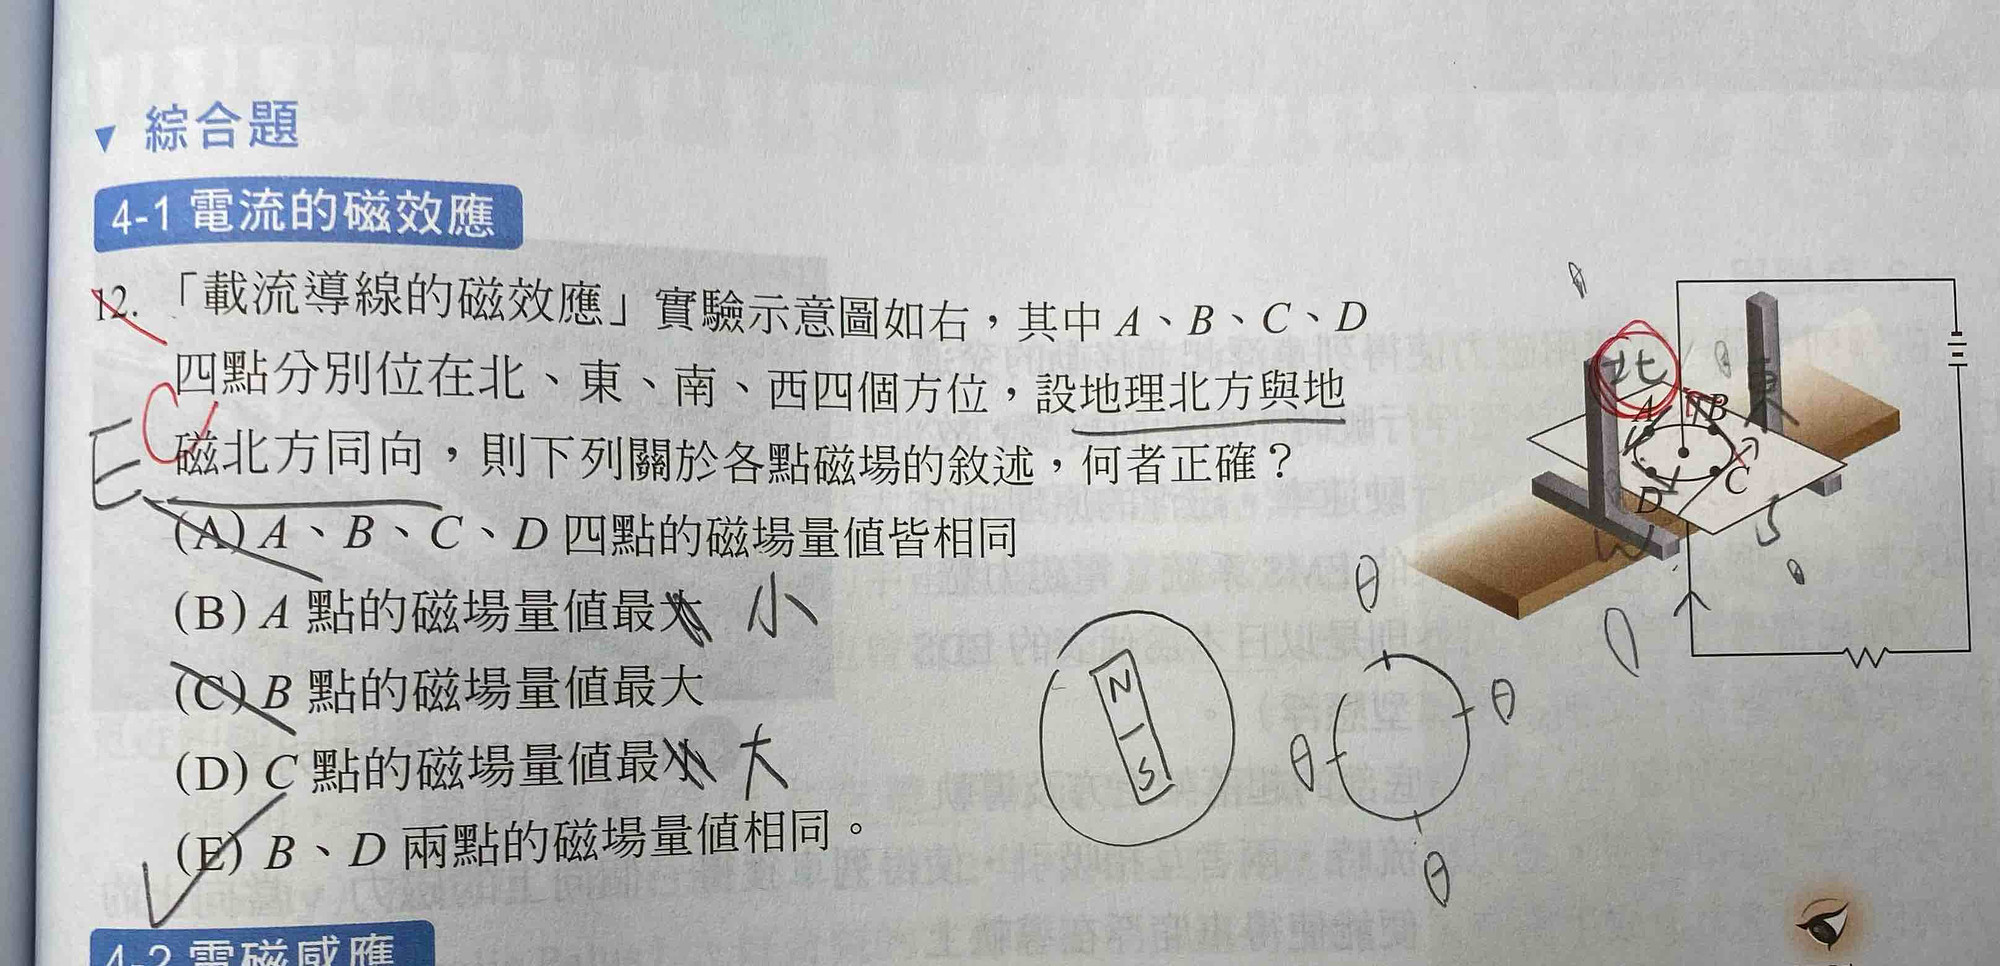 ▼ 綜合題
4-1 電流的磁效應
12. 「載流導線的磁效應」實驗示意圖如右，其中 A、B、C、D
四點分別位在北、東、南、西四個方位，設地理北方與地
磁北方同向，則下列關於各點磁場的敘述，何者正確？
E
C
(A) A、B、C、D 四點的磁場量值皆相同
(B) A 點的磁場量值最大 小
(C) B 點的磁場量值最大
(D) C 點的磁場量值最小 大
(E) B、D 兩點的磁場量值相同。
北
東
A
B
C
D
W
S
N
S
θ
θ
θ
θ
4-2 電磁感應